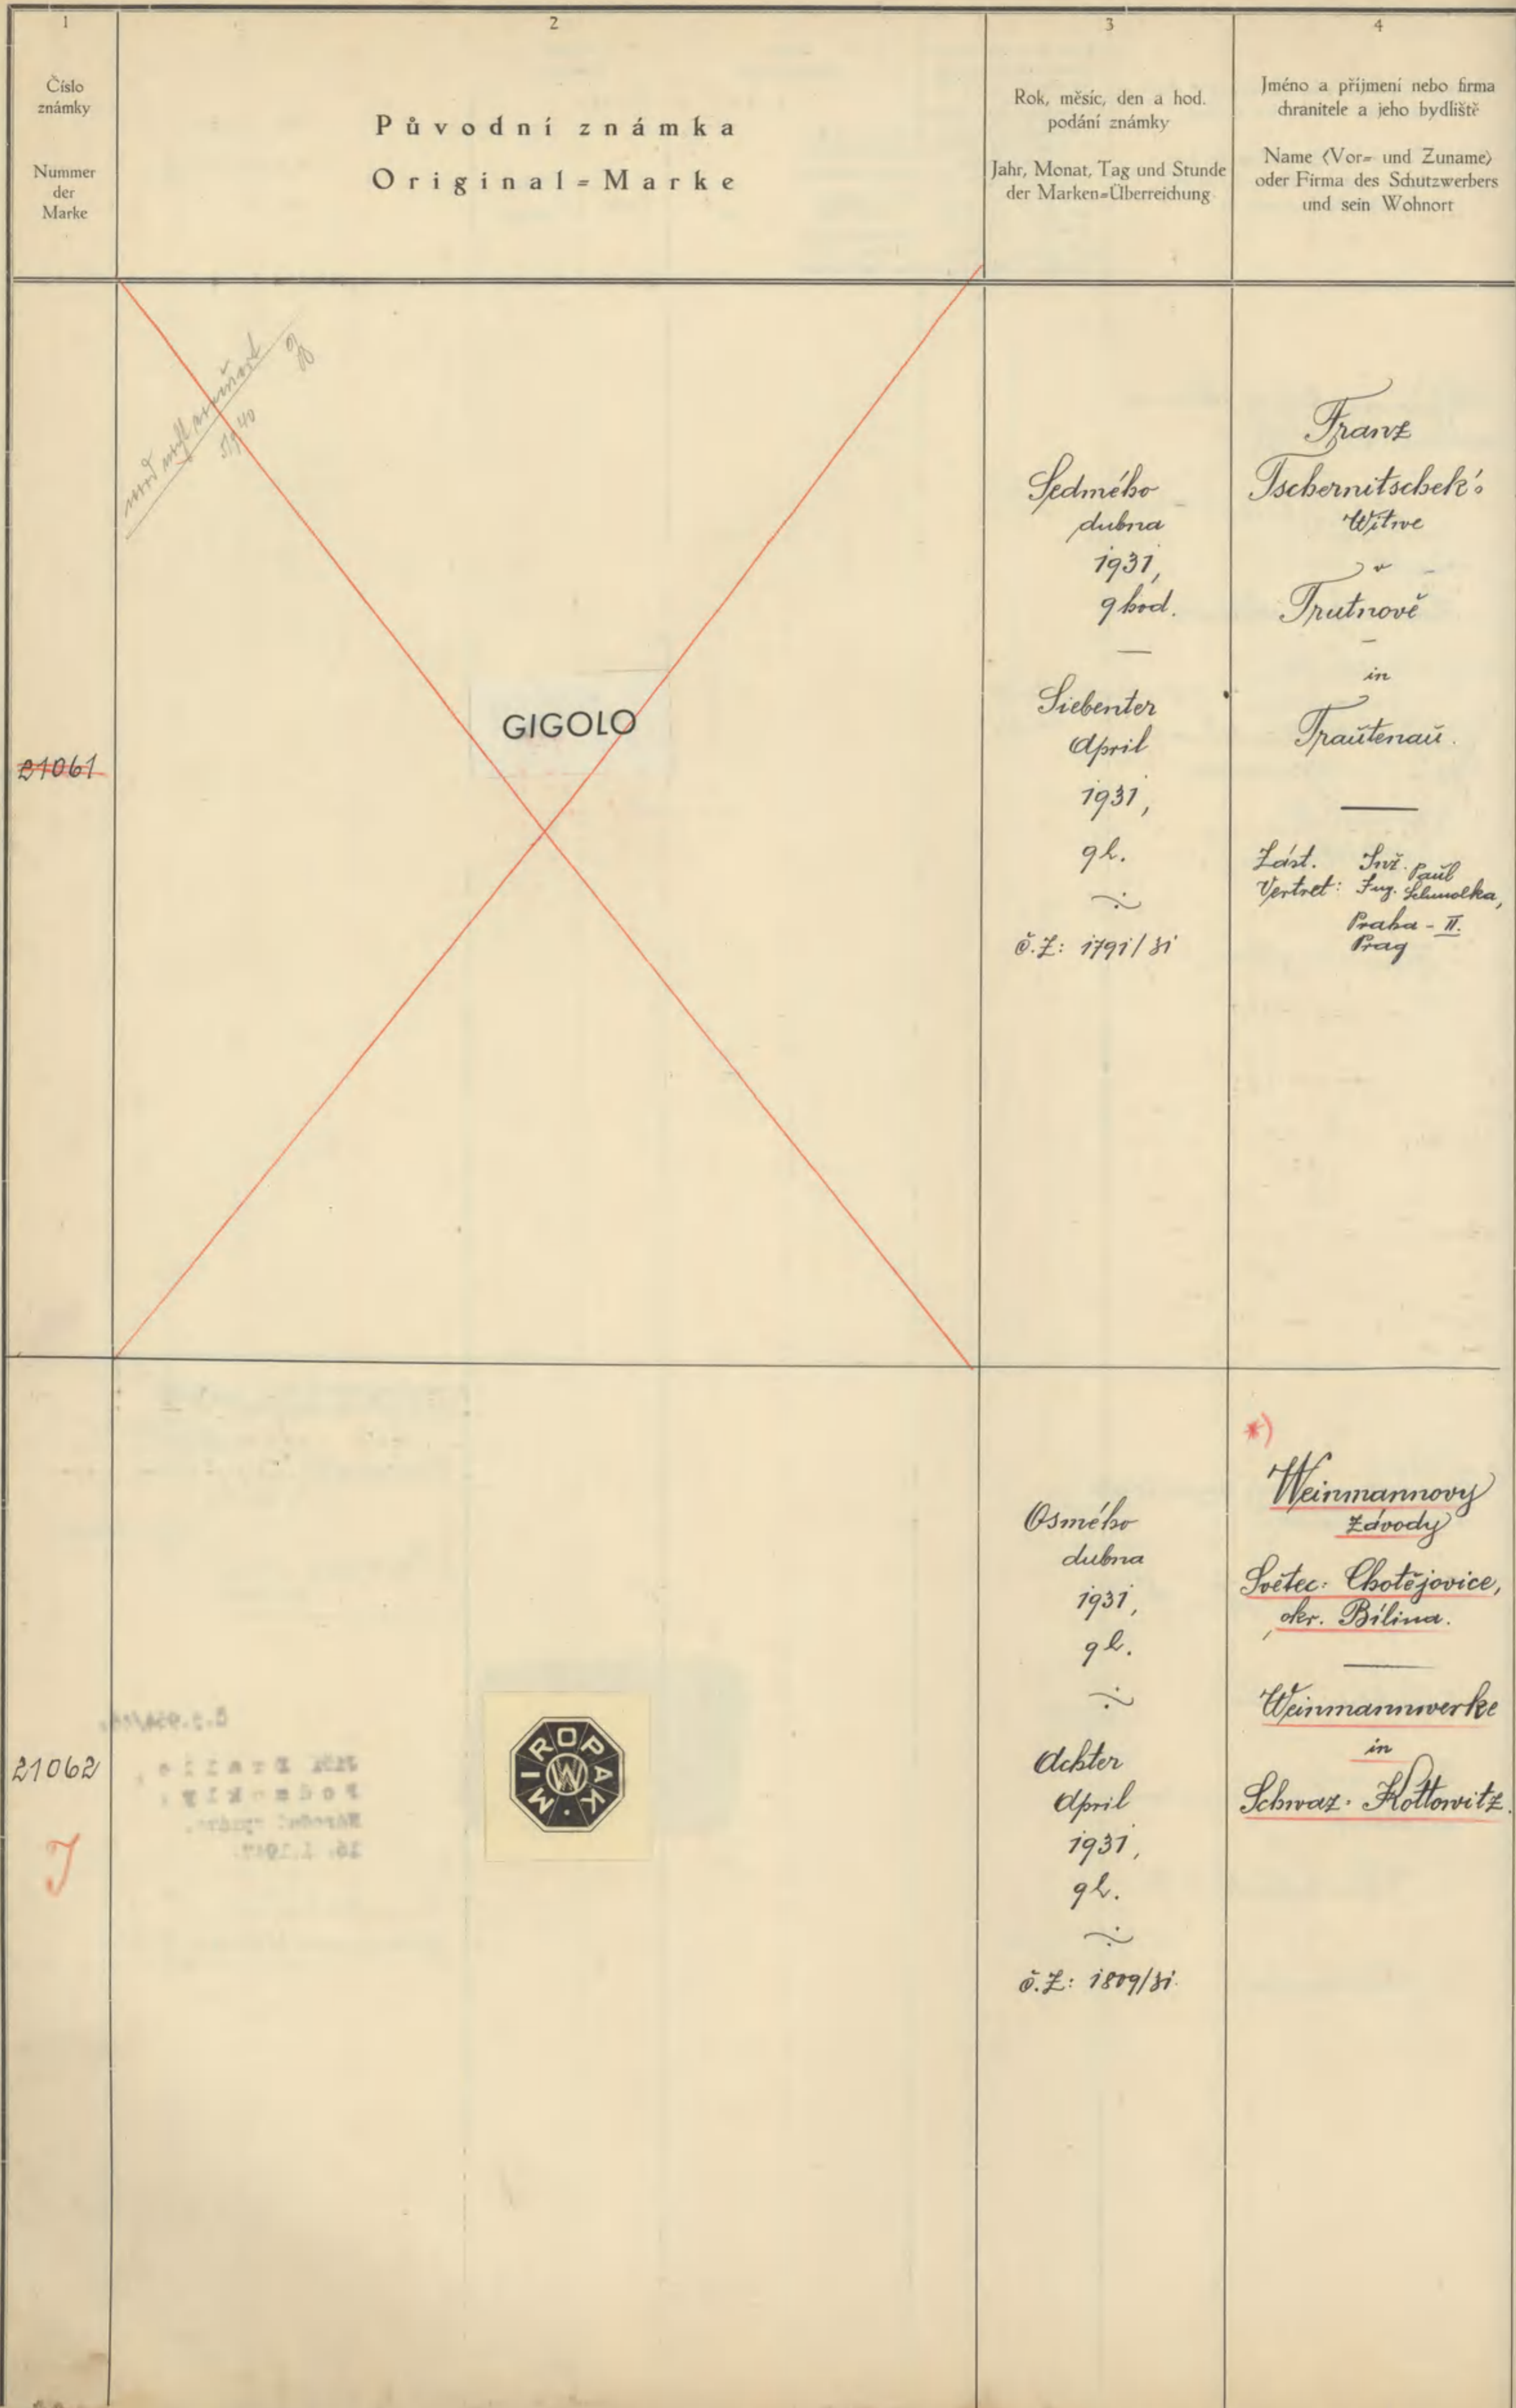 1
2
3
4
Číslo
známky
Nummer
der
Marke
Původní známka
Original=Marke
Rok, měsíc, den a hod.
podání známky
Jahr, Monat, Tag und Stunde
der Marken=Überreichung
Jméno a příjmení nebo firma
chranitele a jeho bydliště
Name (Vor= und Zuname)
oder Firma des Schutzwerbers
und sein Wohnort
21061
GIGOLO
Sedmého
dubna
1931,
9 hod.
Siebenter
April
1931,
9h.
č.ž: 1791/31
Franz
Tschernitschek's
Witwe
v
Trutnově
in
Trautenau.
Zást. Inž. Paul
Vertret: Ing. Schmolka,
Praha - II.
Prag
21062
J
MIROPAK.
WW
Osmého
dubna
1931,
9h.
Achter
April
1931,
9h.
č.ž: 1809/31
*)
Weinmannovy
závody
Světec-Chotějovice,
okr. Bílina.
Weinmannwerke
in
Schwaz-Kottowitz.